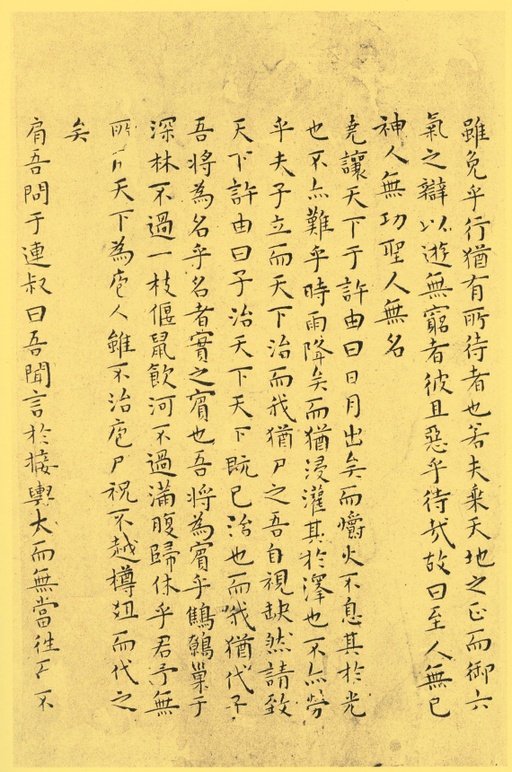 雖免乎行猶有所待者也若夫乘天地之正而御六
氣之辯以遊無窮者彼且惡乎待哉故曰至人無己
神人無功聖人無名
堯讓天下于許由曰日月出矣而爝火不息其於光
也不亦難乎時雨降矣而猶浸灌其於澤也不亦勞
乎夫子立而天下治而我猶尸之吾自視缺然請致
天下許由曰子治天下天下既已治也而我猶代子
吾將為名乎名者實之賓也吾將為賓乎鷦鷯巢于
深林不過一枝偃鼠飲河不過滿腹歸休乎君予無
所天下為庖人雖不治庖尸祝不越樽俎而代之
矣
肩吾問于連叔曰吾聞言於接輿大而無當往而不